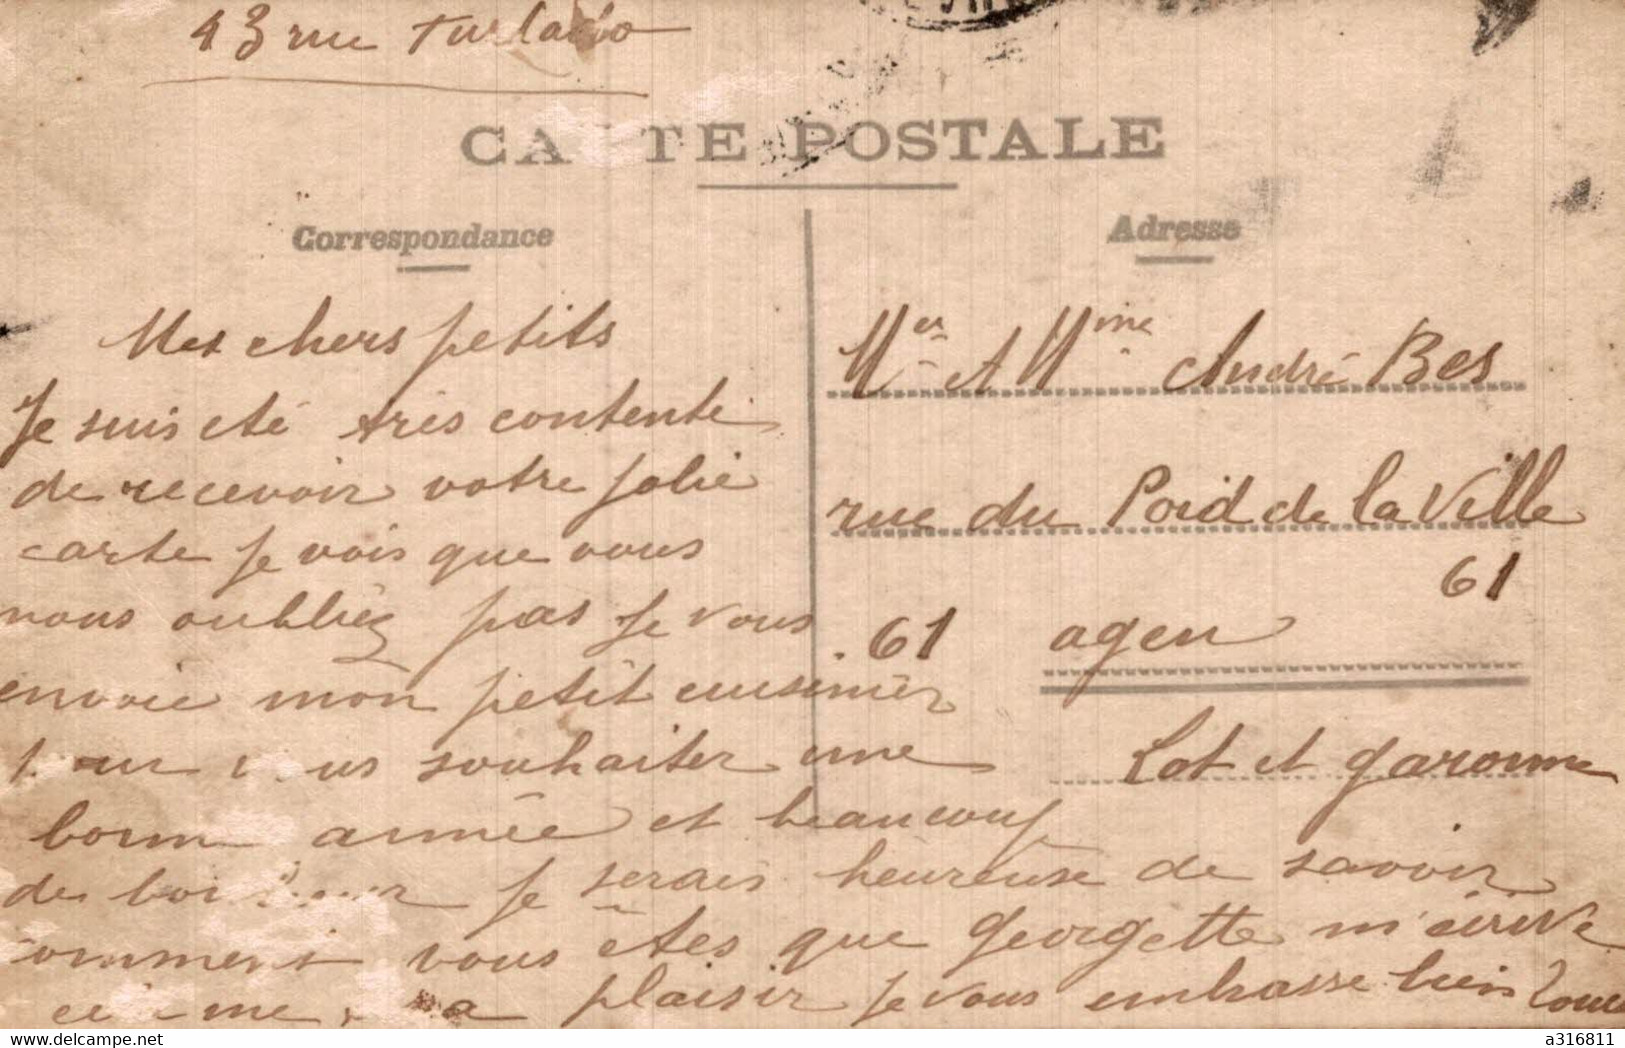 43 rue
CARTE POSTALE
Correspondance
Adresse
Mes chers petits
Je suis eté très contente
de recevoir votre jolie
carte je vois que vous
nous oubliéz pas je vous
envoie mon petit cuisinier
pour vous souhaiter une
bonne année et beaucoup
de bonheur je serais heureuse de savoir
comment vous êtes que Georgette m'écrive
plaisir je vous embrasse bien tous
Mer et Mme André Bes
rue du Poid de la Ville
61
61 agen
Lot et garonne
delcampe.net
a316811